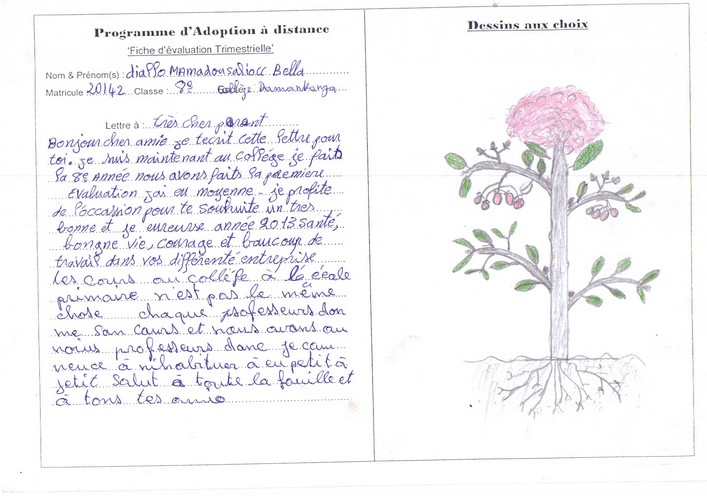 Programme d'Adoption à distance
'Fiche d'évaluation Trimestrielle'
Nom & Prénom(s) : diallo MAmadousaliocc Bella
Matricule 20142 Classe : 8e Collège Damankanya
Lettre à : très cher parent
Bonjour cher amie je t'ecrit cette lettre pour
toi. je suis maintenant au Collége je faits
la 8e Année nous avons faits la premiere
Evaluation j'ai eu moyenne - je profite
de l'occassion pour te souhaite un très
bonne et je eureuse année 2013 santé,
longne vie, courage et beaucoup de
travail dans vos différente entreprise
les cours au collèfe à la école
primaire n'est pas le même
chose chaque professeurs don
me san cours et nous avans au
noins professeurs danc je com
mence à m'habituer à eu petit à
jetit Salut à toute la famille et
à tous tes amis
Dessins aux choix